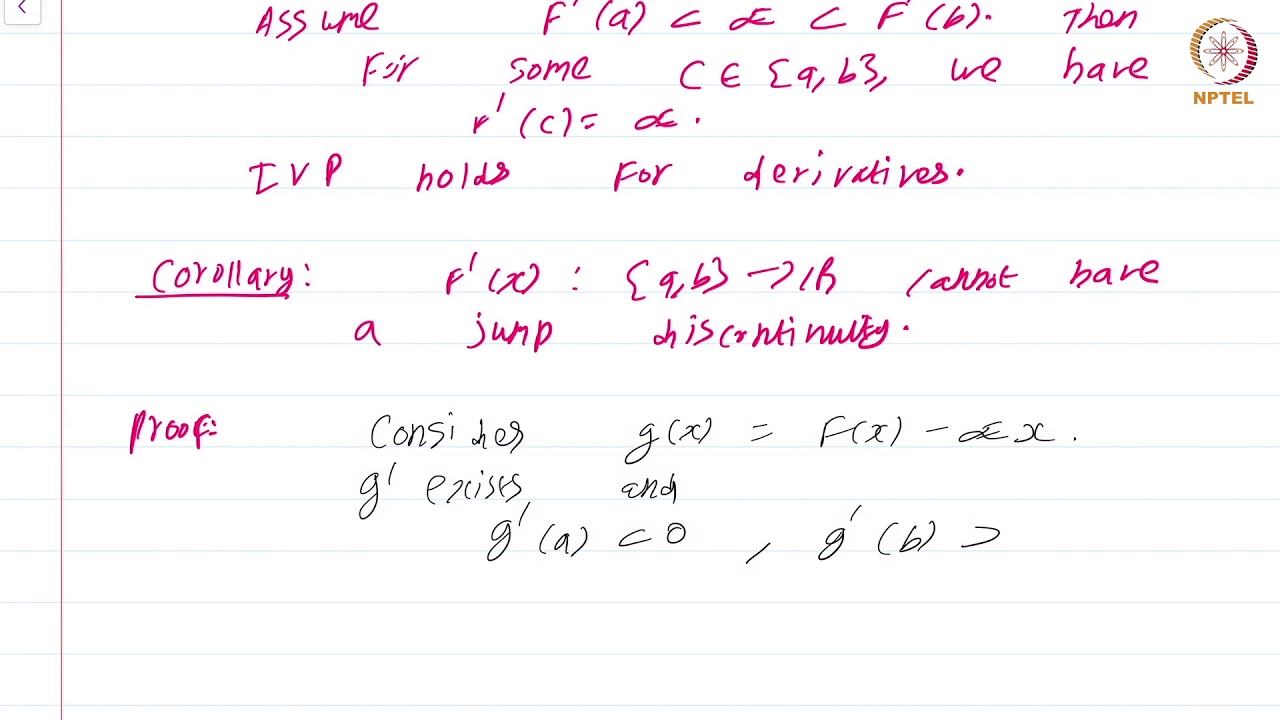 Assume F'(a) < α < F'(b). Then
For some c ∈ [a, b], we have
F'(c) = α.
IVP holds For derivatives.
Corollary: F'(x) : [a, b] → ℝ cannot have
a jump discontinuity.
Proof: Consider g(x) = F(x) - αx.
g' exists and
g'(a) < 0 , g'(b) >
NPTEL